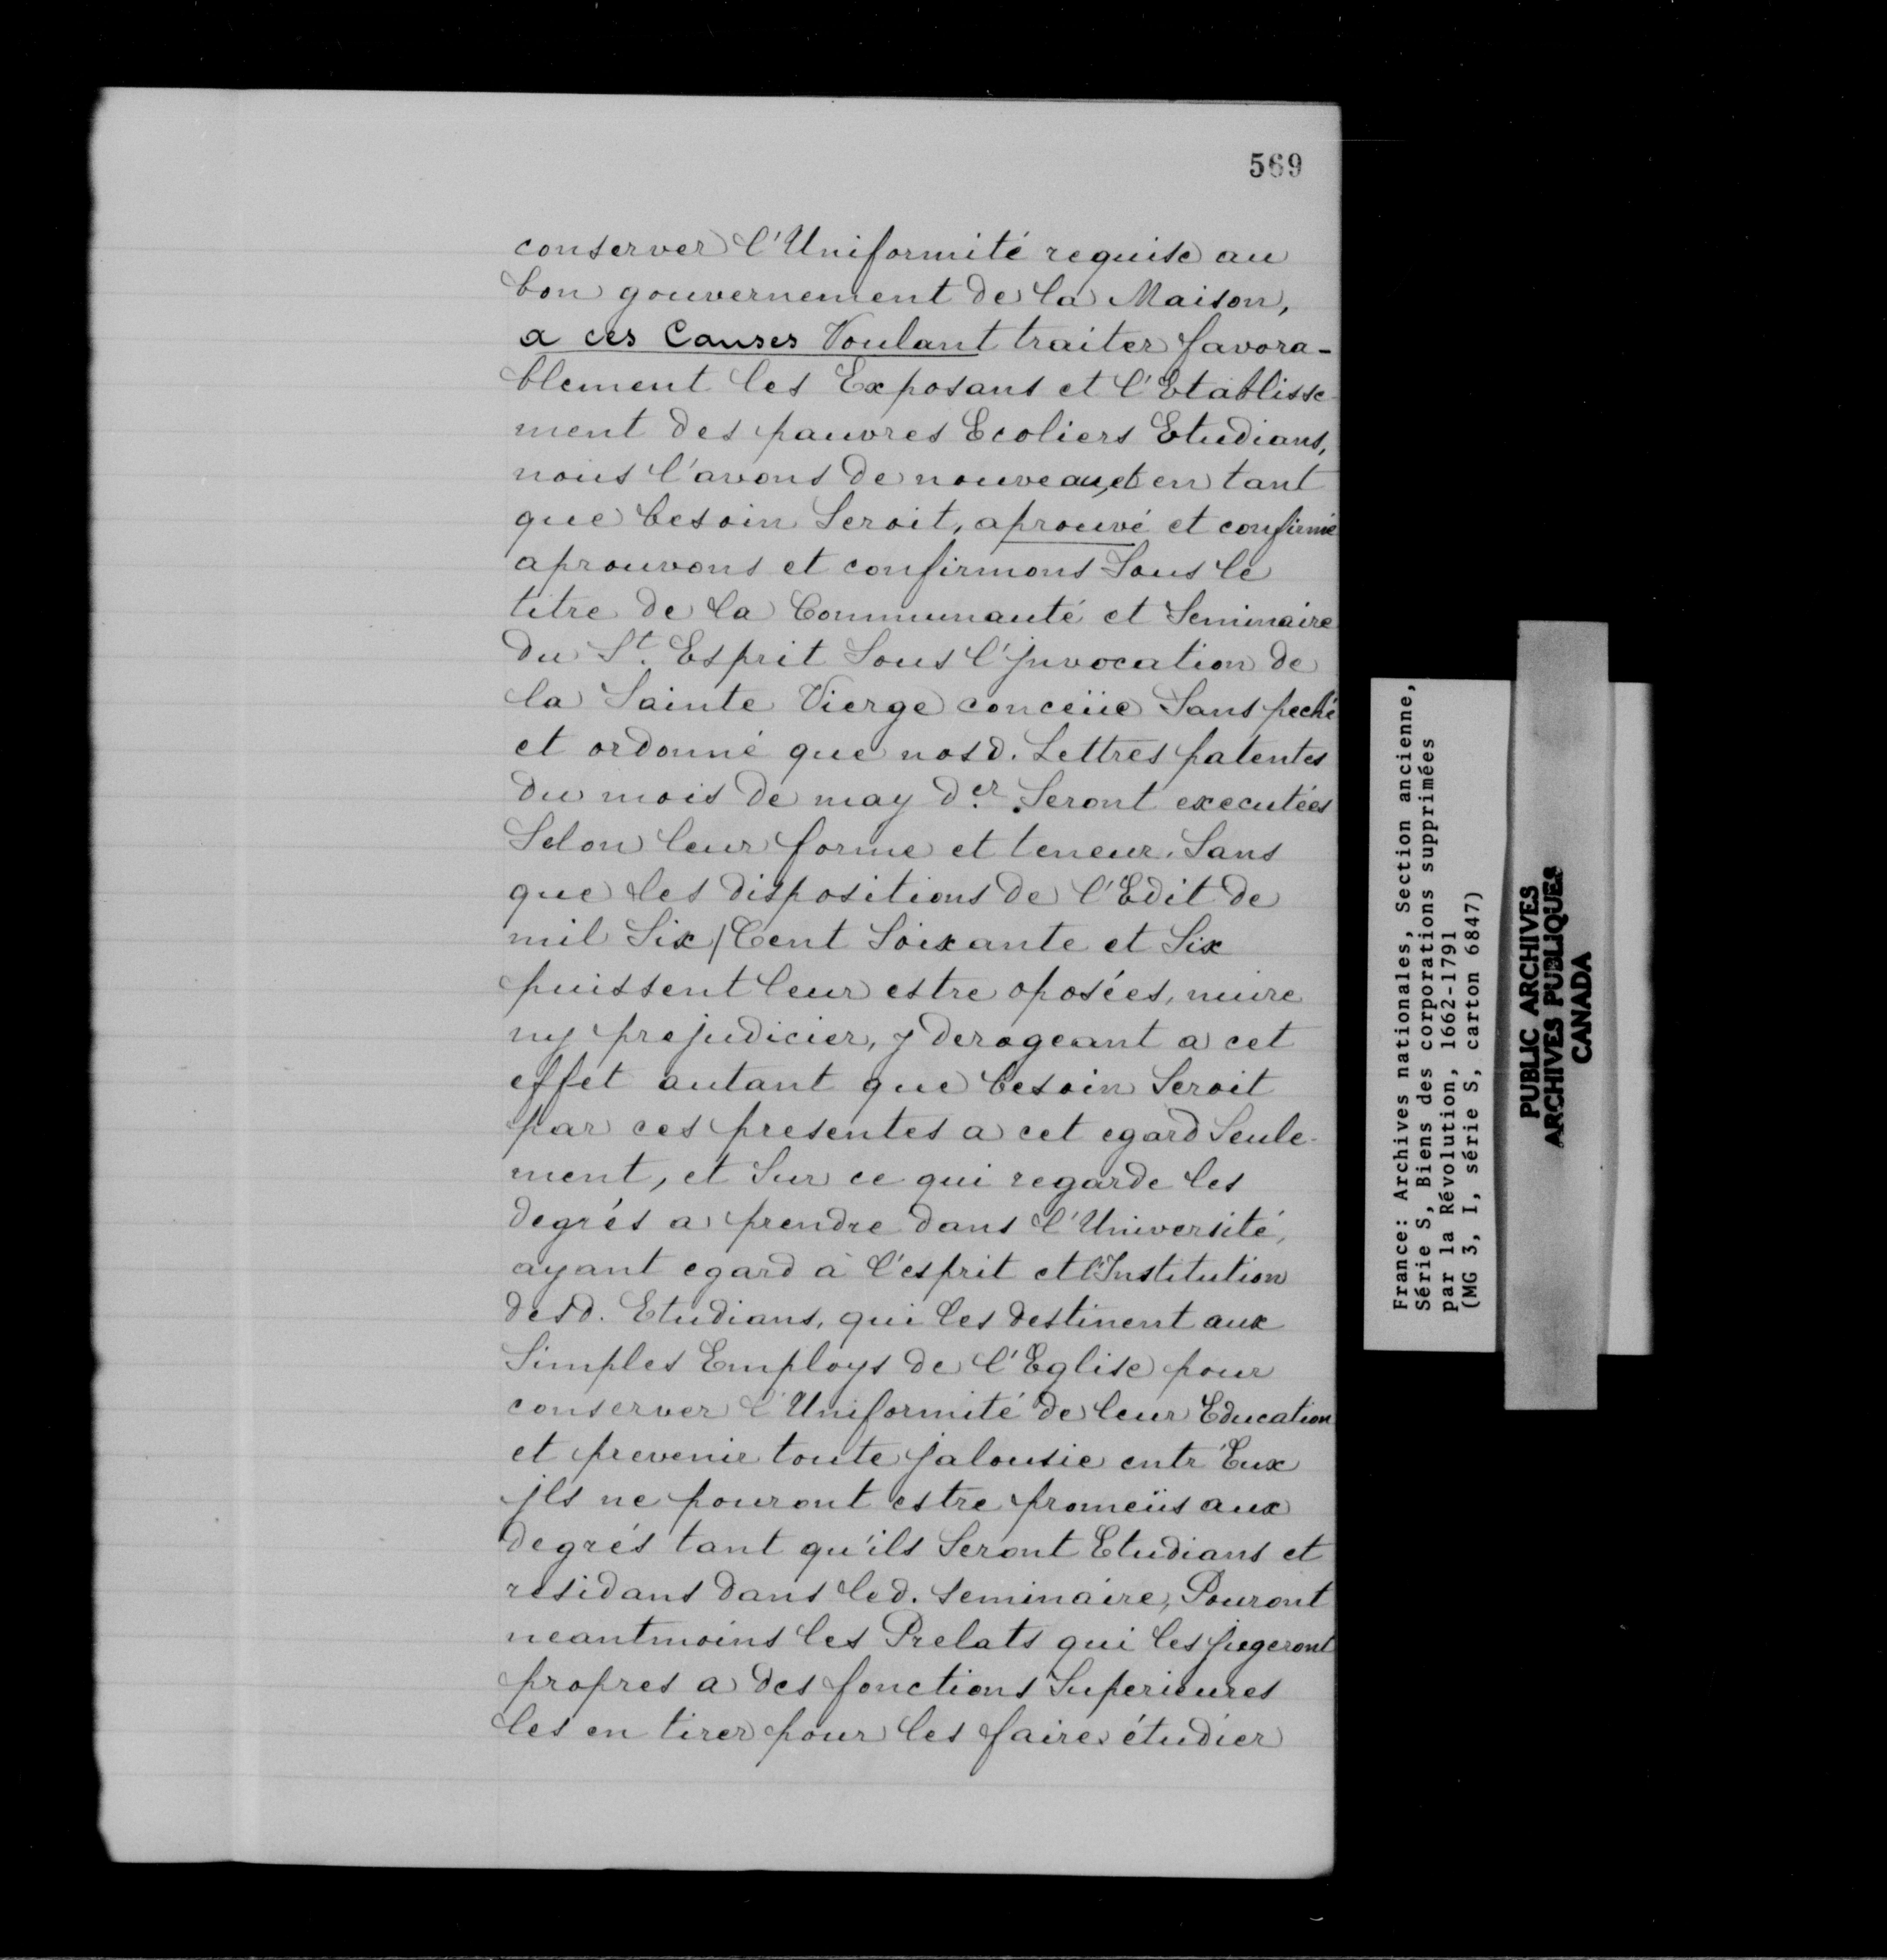 569
conserver l'Uniformité requise au
bon gouvernement de la Maison,
a ces Causes Voulant traiter favora-
blement les Exposans et l'Etablisse-
ment des pauvres Ecoliers Etudians,
nous l'avons de nouveau, et en tant
que besoin Seroit, aprouvé et confirmé
aprouvons et confirmons Sous le
titre de la Communauté et Seminaire
du St. Esprit Sous l'jnvocation de
la Sainte Vierge conceüe Sans peché
et ordonné que nosd. Lettres patentes
du mois de may der. Seront executées
Selon leur forme et teneur. Sans
que les dispositions de l'Edit de
mil Six/Cent Soixante et Six
puissent leur estre oposées, nuire
ny prejudicier, y derogeant a cet
effet autant que besoin Seroit
par ces presentes a cet egard Seule-
ment, et Sur ce qui regarde les
degrés a prendre dans l'Université,
ayant egard à l'esprit et l'Institution
desd. Etudians, qui les destinent aux
Simples Employs de l'Eglise pour
conserver l'Uniformité de leur Education
et prevenir toute jalousie entr'Eux
jls ne pouront estre promeüs aux
degrés tant qu'ils Seront Etudians et
residans dans led. seminaire, Pouront
neantmoins les Prelats qui les jugeront
propres a des fonctions Superieures
les en tirer pour les faire étudier
France: Archives nationales, Section ancienne,
Série S, Biens des corporations supprimées
par la Révolution, 1662-1791
(MG 3, I, série S, carton 6847)
PUBLIC ARCHIVES
ARCHIVES PUBLIQUES
CANADA